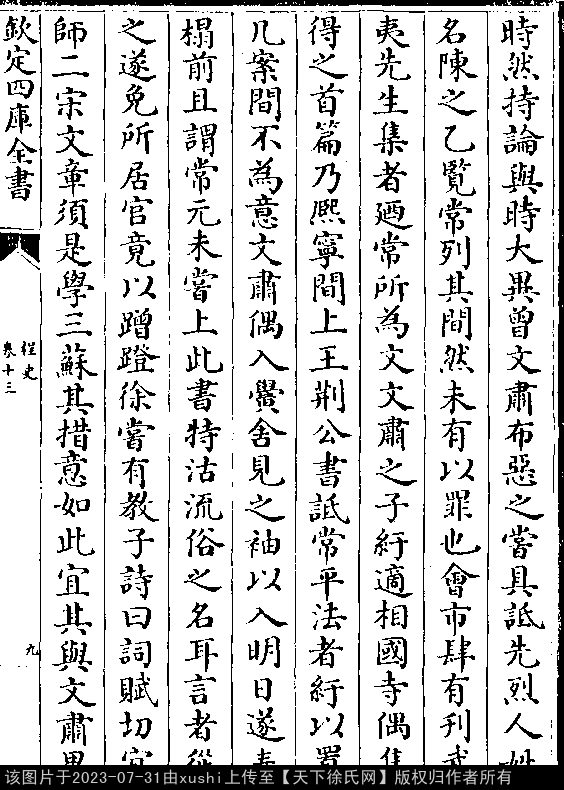 時然持論與時大異曾文肅布惡之嘗具詆先烈人姓
名陳之乙覽常列其間然未有以罪也會市肆有刋武
夷先生集者廼常所為文文肅之子紆適相國寺偶售
得之首篇乃熈寧間上王荆公書詆常平法者紆以置
几案間不為意文肅偶入黌舍見之袖以入明日遂奏
榻前且謂常元未嘗上此書特沽流俗之名耳言者從
之遂免所居官竟以蹭蹬徐嘗有教子詩曰詞賦切宜
師二宋文章須是學三蘇其措意如此宜其與文肅異
欽定四庫全書
桯史
卷十三
九
该图片于2023-07-31由xushi上传至【天下徐氏网】版权归作者所有